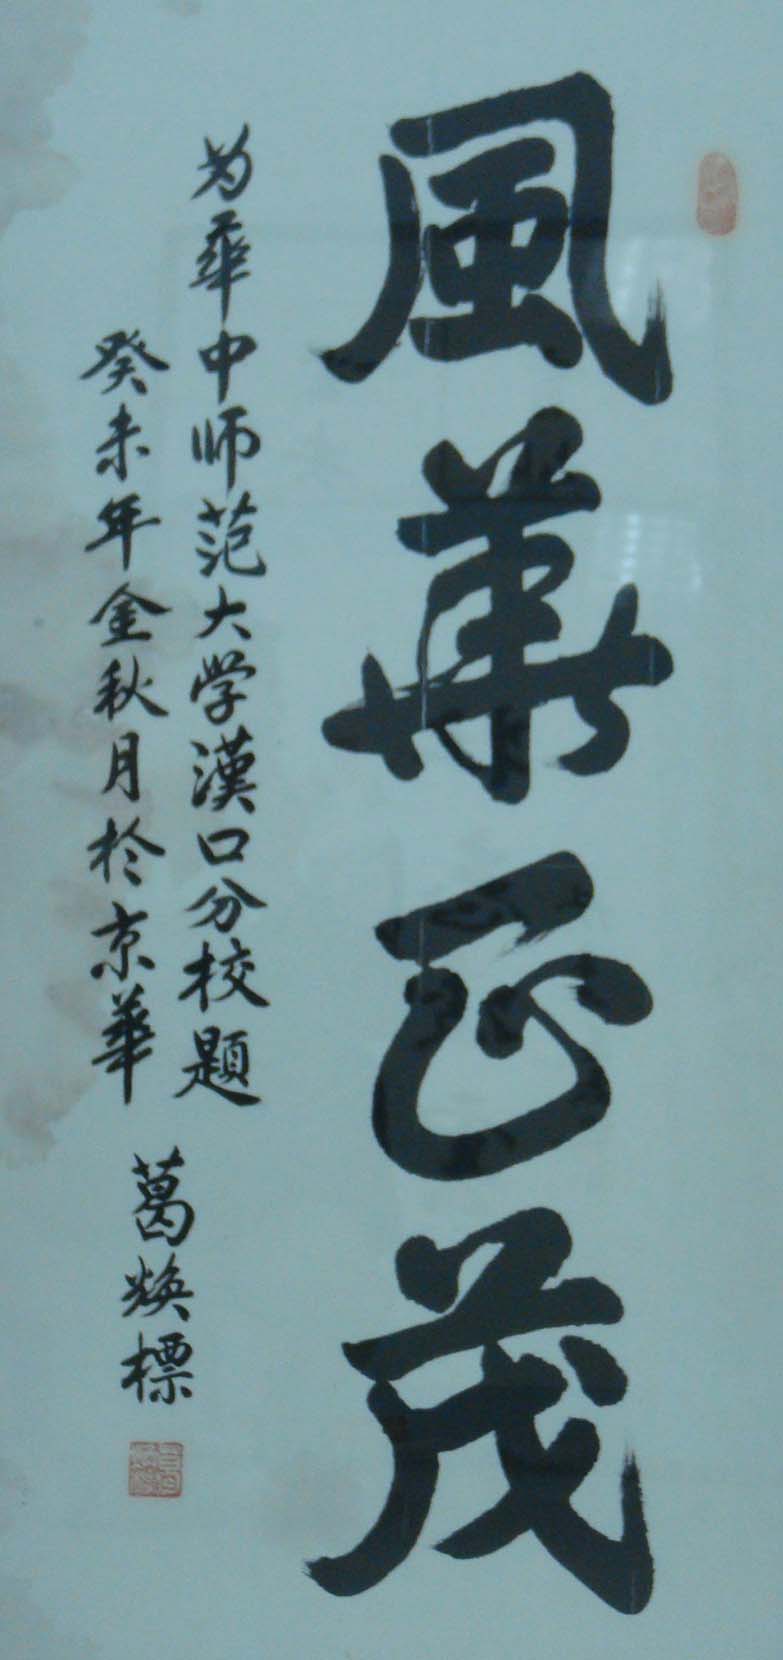 風華正茂
为華中师范大学漢口分校題
癸未年金秋月於京華
葛焕標